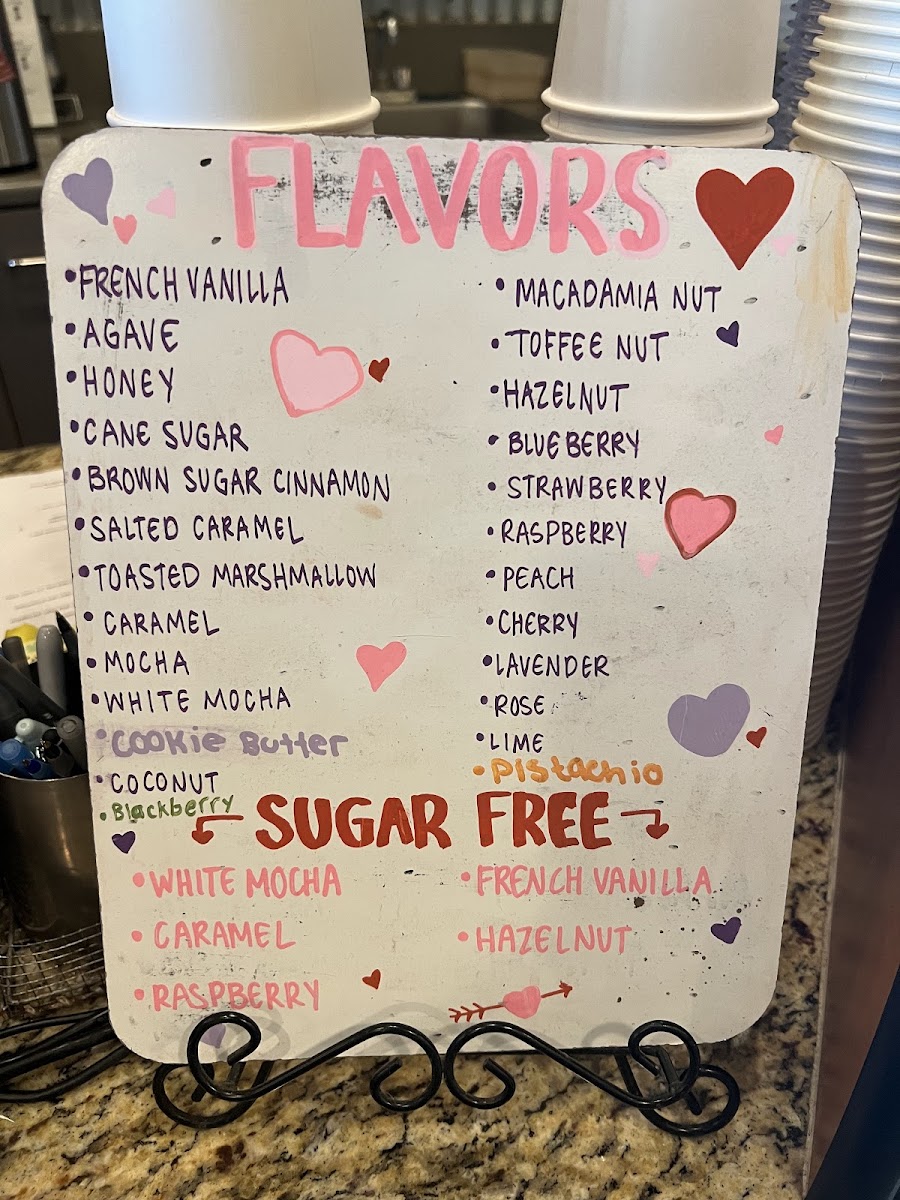 FLAVORS
• FRENCH VANILLA
• AGAVE
• HONEY
• CANE SUGAR
• BROWN SUGAR CINNAMON
• SALTED CARAMEL
• TOASTED MARSHMALLOW
• CARAMEL
• MOCHA
• WHITE MOCHA
• Cookie Butter
• COCONUT
• Blackberry
• MACADAMIA NUT
• TOFFEE NUT
• HAZELNUT
• BLUEBERRY
• STRAWBERRY
• RASPBERRY
• PEACH
• CHERRY
• LAVENDER
• ROSE
• LIME
• Pistachio
SUGAR FREE
• WHITE MOCHA
• CARAMEL
• RASPBERRY
• FRENCH VANILLA
• HAZELNUT